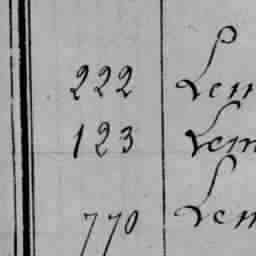 222 Lem
123 Lem
770 Lem